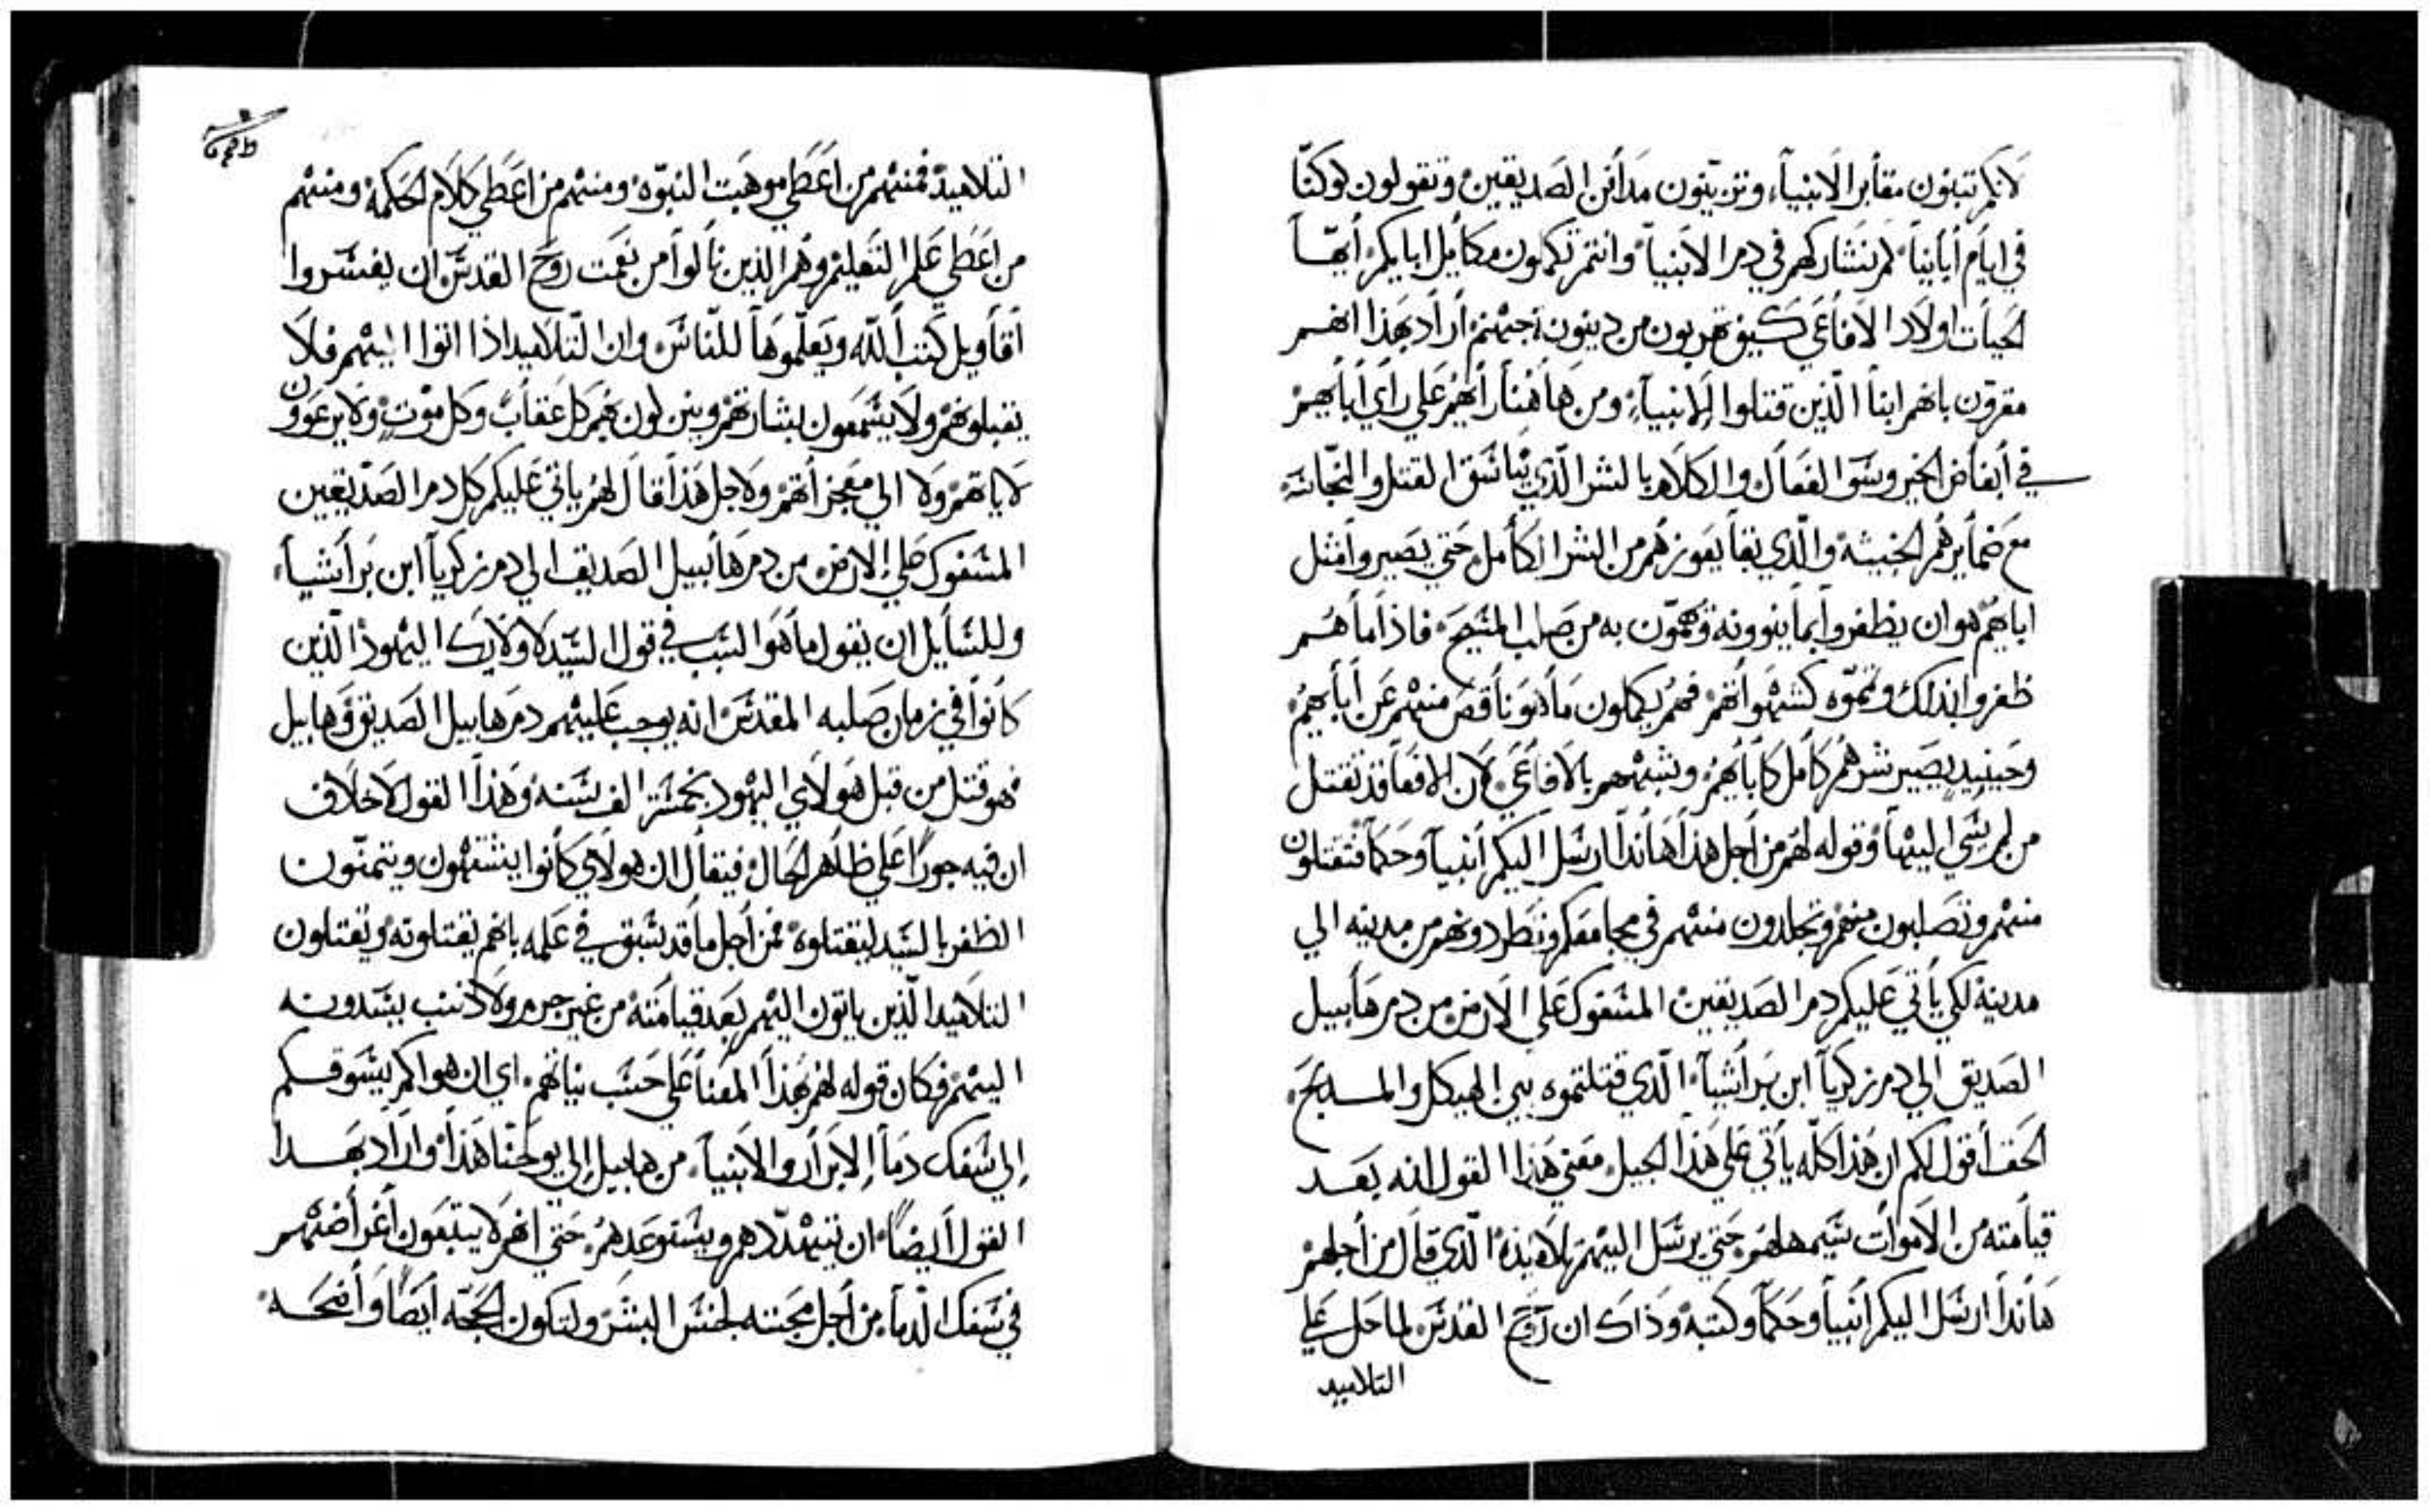 لانكم تبنون مقابر الانبياء وتزينون مدافن الصديقين وتقولون لو كنّا
في ايام أبانيا لم نشاركهم في دم الانبيا وانتم تكملون مكاييل ابايكم أيها
الحيات اولاد الافاعي كيف تهربون من دينونة جهنم أراد بهذا انهم
مقرون بانهم ابنا الّذين قتلوا الانبياء ومن هاهنا رأيهم علي راي أبايهم
في أبغاض الخير وسوا الفعال والكلام بالشر الّذي القتل والنجاسه
مع ضمايرهم الخبيثة والّذي بقا يعوزهم من الشر الكامل حتي يصيروا مثل
اباهم هو ان يظفروا بما ينوونه ويهمّون به من صلب المسيح فاذا ما هم
ظفروا بذلك وتمّوه كشهواتهم فهم يكملون ما هو ناقص منهم عن أبايهم
وحينيد يصير شرهم كامل كأبايهم وشبههم بالافاعي لان الافعا قد تقتل
من لم يسي اليها وقوله لهم من أجل هذا هاندا ارسل اليكم أنبيا وحكما فتقتلون
منهم وتصلبون منهم وتجلدون منهم في مجامعكم وتطردونهم من مدينه الي
مدينة لكي يأتي عليكم دم الصديقين المسفوك علي الارض من دم هابيل
الصديق الي دم زكريا ابن براشيا الّذي قتلتموه بين الهيكل والمدبح
الحق أقول لكم ان هذا كلّه يأتي علي هذا الجيل معني هذا القول انه بعد
قيامته من الاموات سيمهلهم حتي يرسل اليهم تلاميذه الّذي قال من أجلهم
هاندا ارسل اليكم أنبيا وحكما وكتبه وذاك ان روح القدس لما حل علي
التلاميد
التلاميد فمنهم من اعطي موهبت النبوّه ومنهم من اعطي كلام الحكمة ومنهم
من اعطي علم التعليم وهم الذين نالوا من نعمت روح القدس ان يفسروا
أقاويل كتب اللّه ويعلّموها للنّاس وان التّلاميد اذا اتوا اليهم فلا
يقبلوهم ولا يسمعون بشارتهم وينزلون بهم كل عقاب وكل موت ولا يرعوون
لاياتهم ولا الي معجزاتهم ولاجل هذا قال لهم ياتي عليكم كل دم الصدّيقين
المسفوك علي الارض من دم هابيل الصديق الي دم زكريا ابن براشيا
وللسايل ان يقول ما هو السبب في قول السيد لاولايك اليهود الّذين
كانوا في زمان صلبه المقدس انه يوجب عليهم دم هابيل الصديق وهابيل
فهو قتل من قبل هولاي اليهود بخمسة الف سنه وهذا القول لاخلاف
ان فيه جورًا علي ظاهر الحال فيقال ان هولاي كانوا يشتهون ويتمنّون
الظفر بالسيد ليقتلوه فمن أجل ما قد سبق في علمه بانهم يقتلونه ويقتلون
التلاميد الّذين ياتون اليهم بعد قيامته من غير جرم ولا ذنب يسدونه
اليهم فكان قوله لهم بهذا المعنا علي حسب نياتهم اي ان هواكم يسوقكم
إلي سفك دما الابرار والانبيا من هابيل إلي يوحنّا هذا واراد بهدا
القول أيضاً ان يتهدّدهم ويستوعدهم حتي انهم لا يتبعون أغراضهم
في سفك الدّما من أجل محبته لجنس البشر ولتكون الحجّه أيضاً واضحه